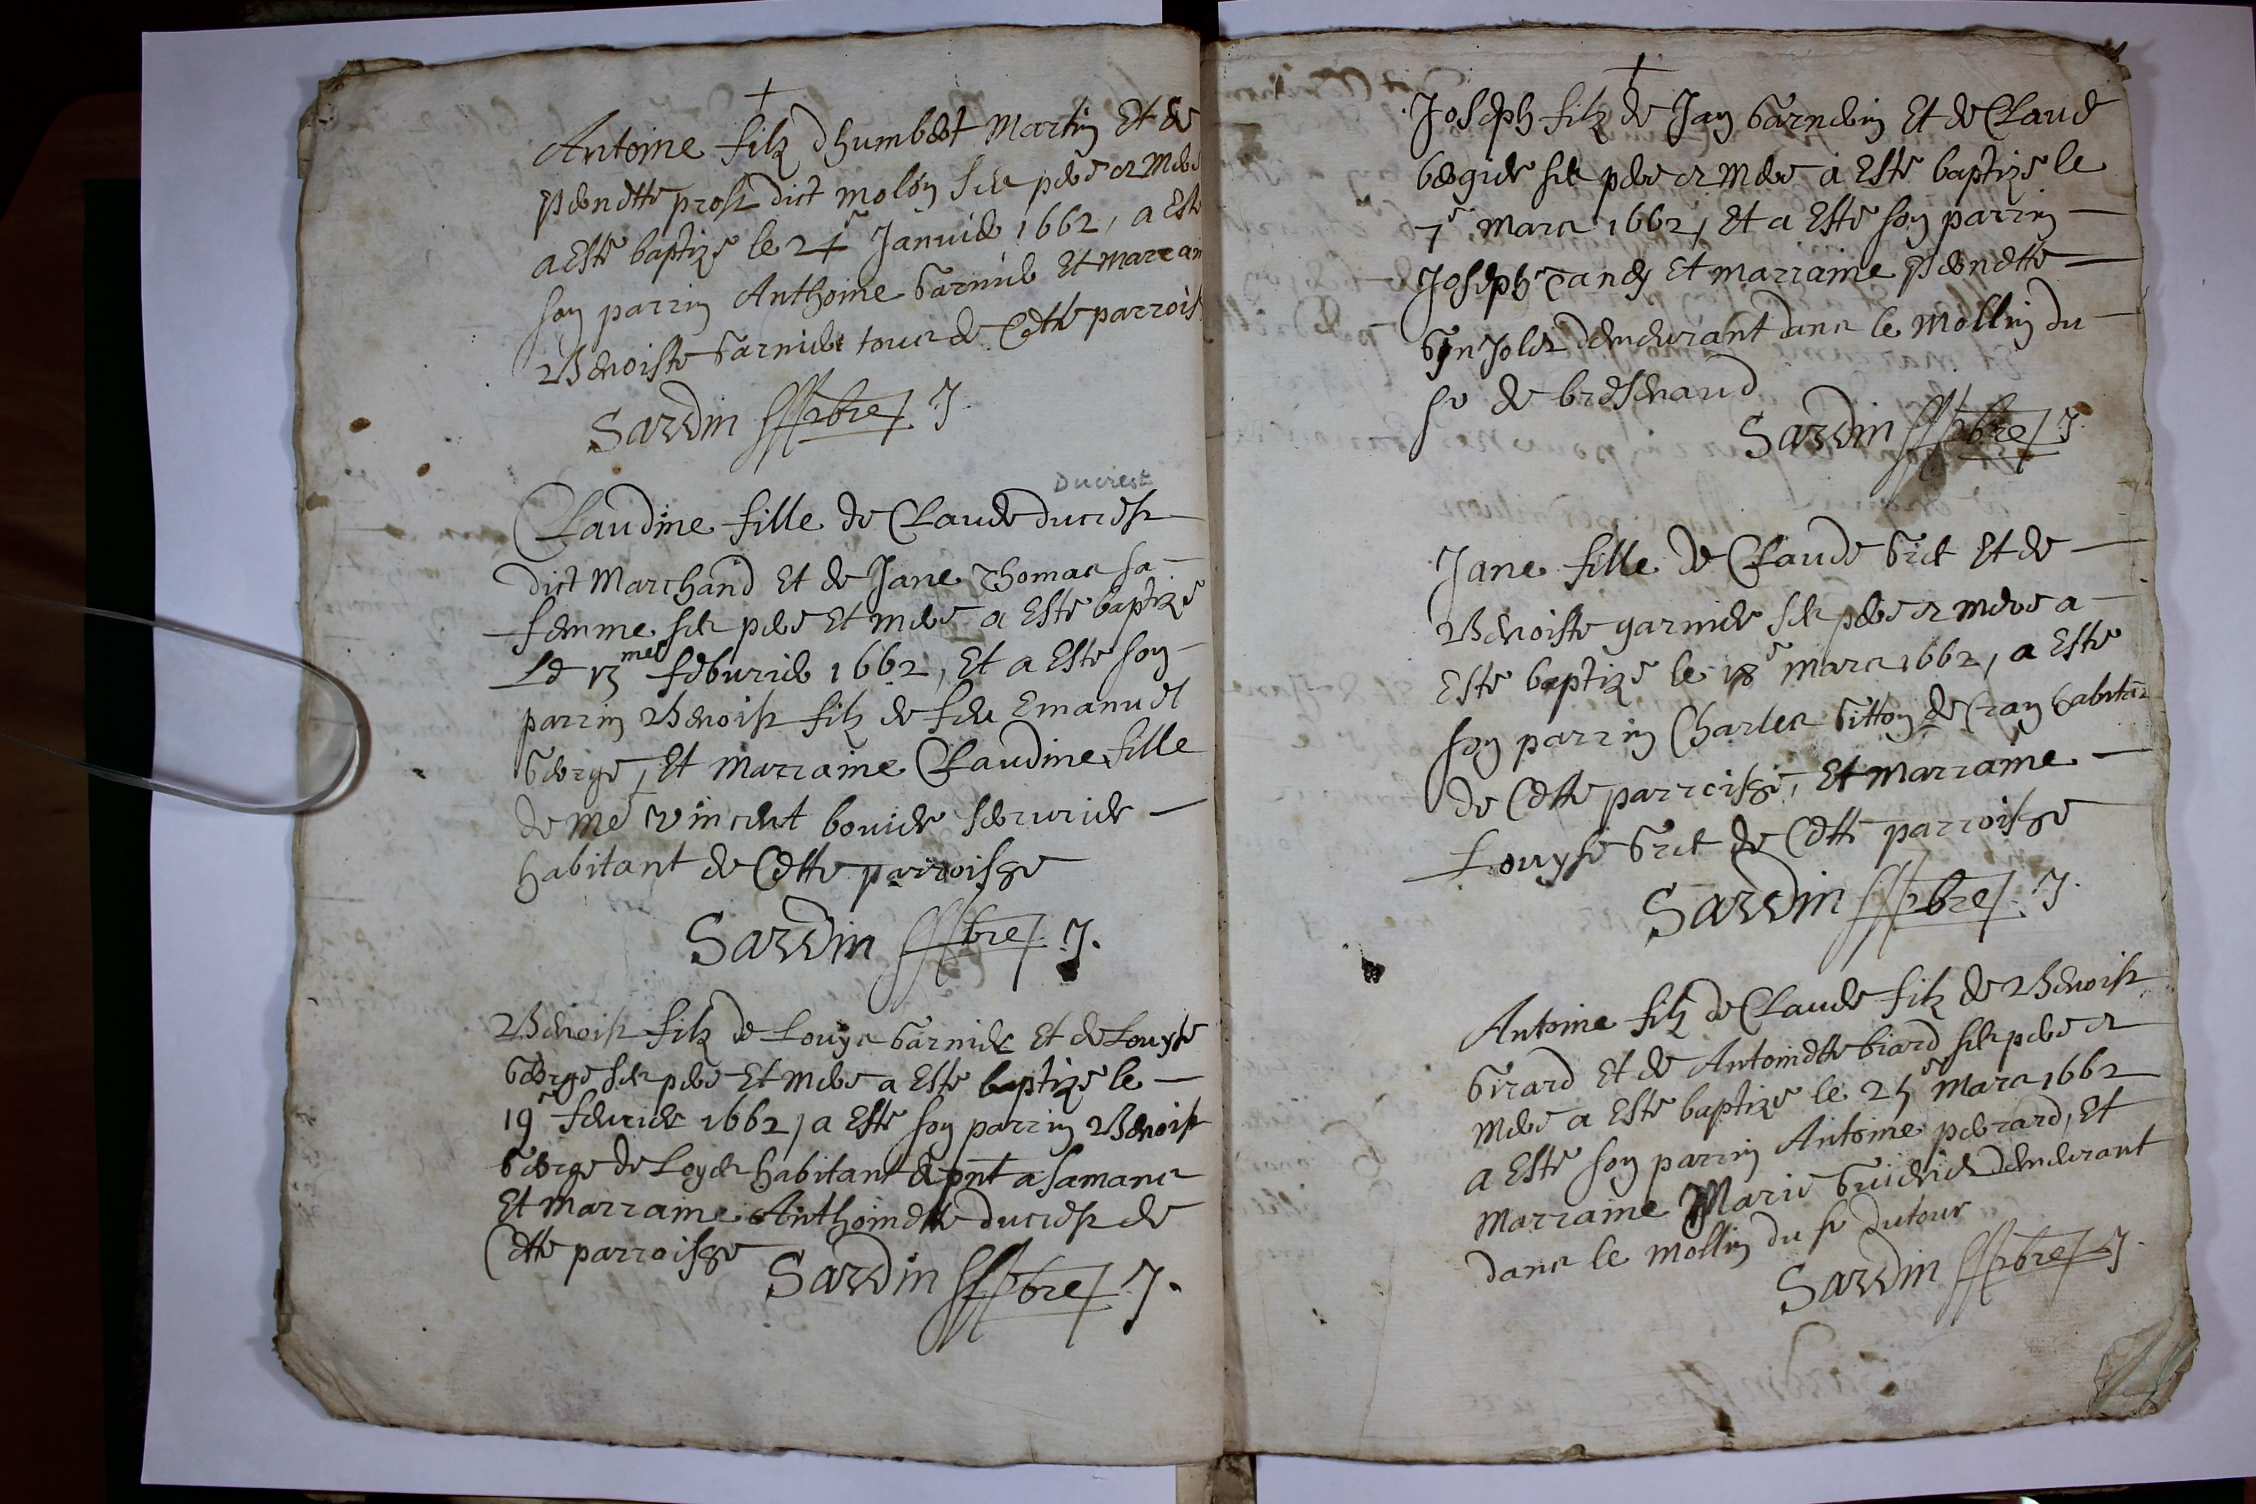 Antoine filz dhumbert Martin Et de
pernette prost dict molon ses pere et mere
a Este baptizé le 24e Januier 1662, a Este
son parrin Anthoine Garnier Et marrain
Benoiste Garnier tous de Cette parrois
Sardin pbre J.
Ducrest
Claudine fille de Claude ducrest
dict Marchand Et de Jane Thomas sa
femme ses pere Et mere a Este baptizé
Le 13me feburier 1662, Et a Este son
parrin Benoist filz de feu Emanuel
George, Et Marraine Claudine fille
de me vincent bouier serurier
habitant de Cette parroisse
Sardin pbre J.
Benoist filz de Louys Garnier Et de Louyse
George ses pere Et mere a Este baptizé le
19e feurier 1662, a Este son parrin Benoist
George de habitant a pnt a
Et Marraine Anthoinette ducrest de
Cette parroisse
Sardin pbre J.
Joseph filz de Jan Garnier Et de Claud
ses pere et Mere a Este baptizé le
7e Mars 1662, Et a Este son parrin
Joseph Et marraine pernette
demeurant dans le Mollin du
sr de
Sardin pbre J.
Jane fille de Claude Et de
Benoiste garnier ses pere et mere a
Este baptizé le 18e Mars 1662, a Este
son parrin Charles Gitton de Cran habitant
de Cette parroisse, Et Marraine
Louyse de Cette parroisse
Sardin pbre J.
Antoine filz de Claude filz de Benoist
Girard Et de Antoinette biard ses pere et
mere a Este baptizé le 25e Mars 1662
a Este son parrin Antoine perard, Et
Marraine Marie demeurant
dans le mollin du sr dutour
Sardin pbre J.